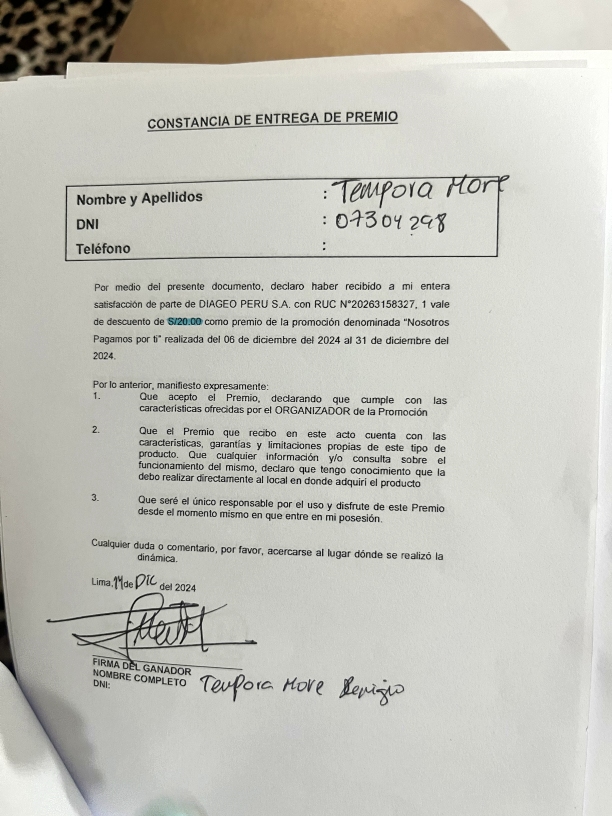 CONSTANCIA DE ENTREGA DE PREMIO
Nombre y Apellidos : Tempora More
DNI : 07304298
Teléfono :
Por medio del presente documento, declaro haber recibido a mi entera
satisfacción de parte de DIAGEO PERU S.A. con RUC N°20263158327, 1 vale
de descuento de S/20.00 como premio de la promoción denominada "Nosotros
Pagamos por ti" realizada del 06 de diciembre del 2024 al 31 de diciembre del
2024.
Por lo anterior, manifiesto expresamente:
1. Que acepto el Premio, declarando que cumple con las
características ofrecidas por el ORGANIZADOR de la Promoción
2. Que el Premio que recibo en este acto cuenta con las
características, garantías y limitaciones propias de este tipo de
producto. Que cualquier información y/o consulta sobre el
funcionamiento del mismo, declaro que tengo conocimiento que la
debo realizar directamente al local en donde adquirí el producto
3. Que seré el único responsable por el uso y disfrute de este Premio
desde el momento mismo en que entre en mi posesión.
Cualquier duda o comentario, por favor, acercarse al lugar dónde se realizó la
dinámica.
Lima, 14 de DIC del 2024
FIRMA DEL GANADOR
NOMBRE COMPLETO Tempora More Remigio
DNI: